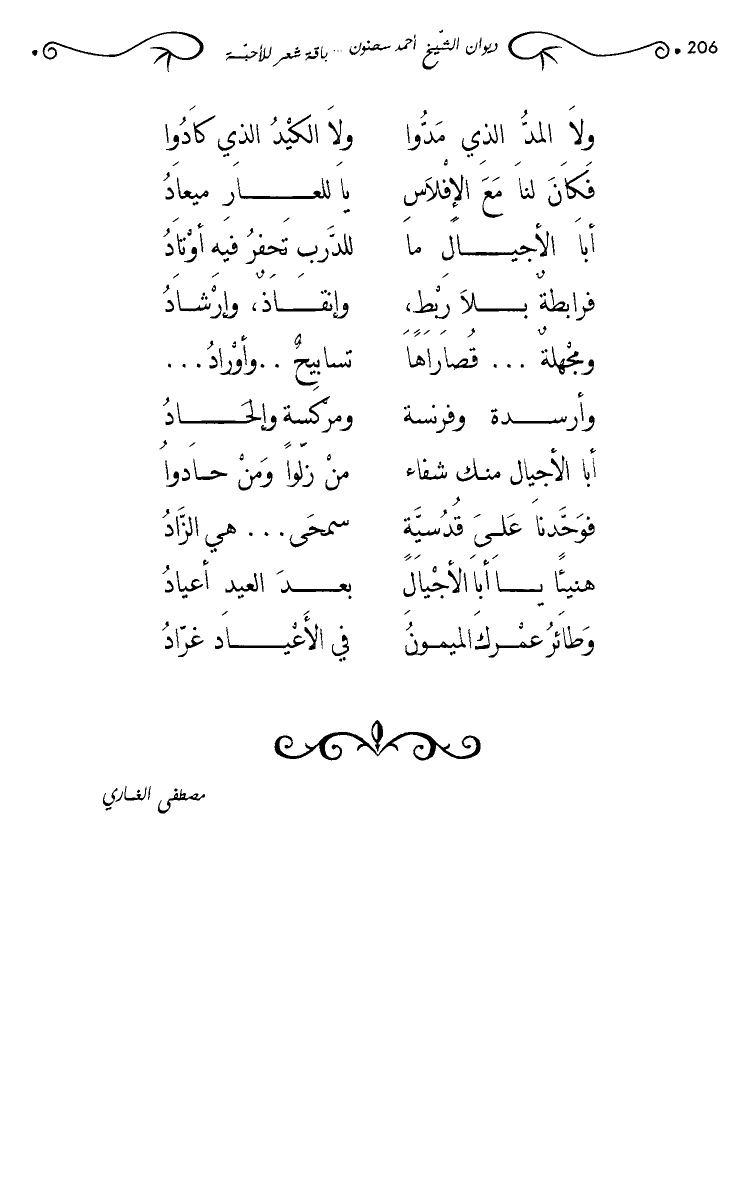 206 ديوان الشّيخ أحمد سحنون ... باقة شعر للأحبّة
ولاَ المدُّ الذي مَدُّوا ولاَ الكَيْدُ الذي كادُوا
فَكانَ لنا مَعَ الإِفْلاَسِ يا للعـــارِ ميعادُ
أبا الأجيـــال ما للدَّربِ تَحفِرُ فيه أوْتادُ
فرابطةٌ بـــلاَ رَبْطٍ، وإنقـــاذٌ، وإرْشـادُ
ومَجْهلةٌ ... قُصارَاهَا تسابيحٌ ..وأوْرادُ...
وأرســـدة وفرنسة ومرْكَسة وإلحَـــادُ
أبا الأجيال منـك شفاء منْ زلّوا وَمَنْ حـادوا
فوَحَّدنا عَلـىَ قُدُسيَّةٍ سمحَى... هي الزَّادُ
هنيئًا يـــا أبا الأجْيالَ بعـــدَ العيد أعيادُ
وَطائرُ عمْـرك الميمـونُ في الأَعْيـــاد غرّادُ
مصطفى الغـاري